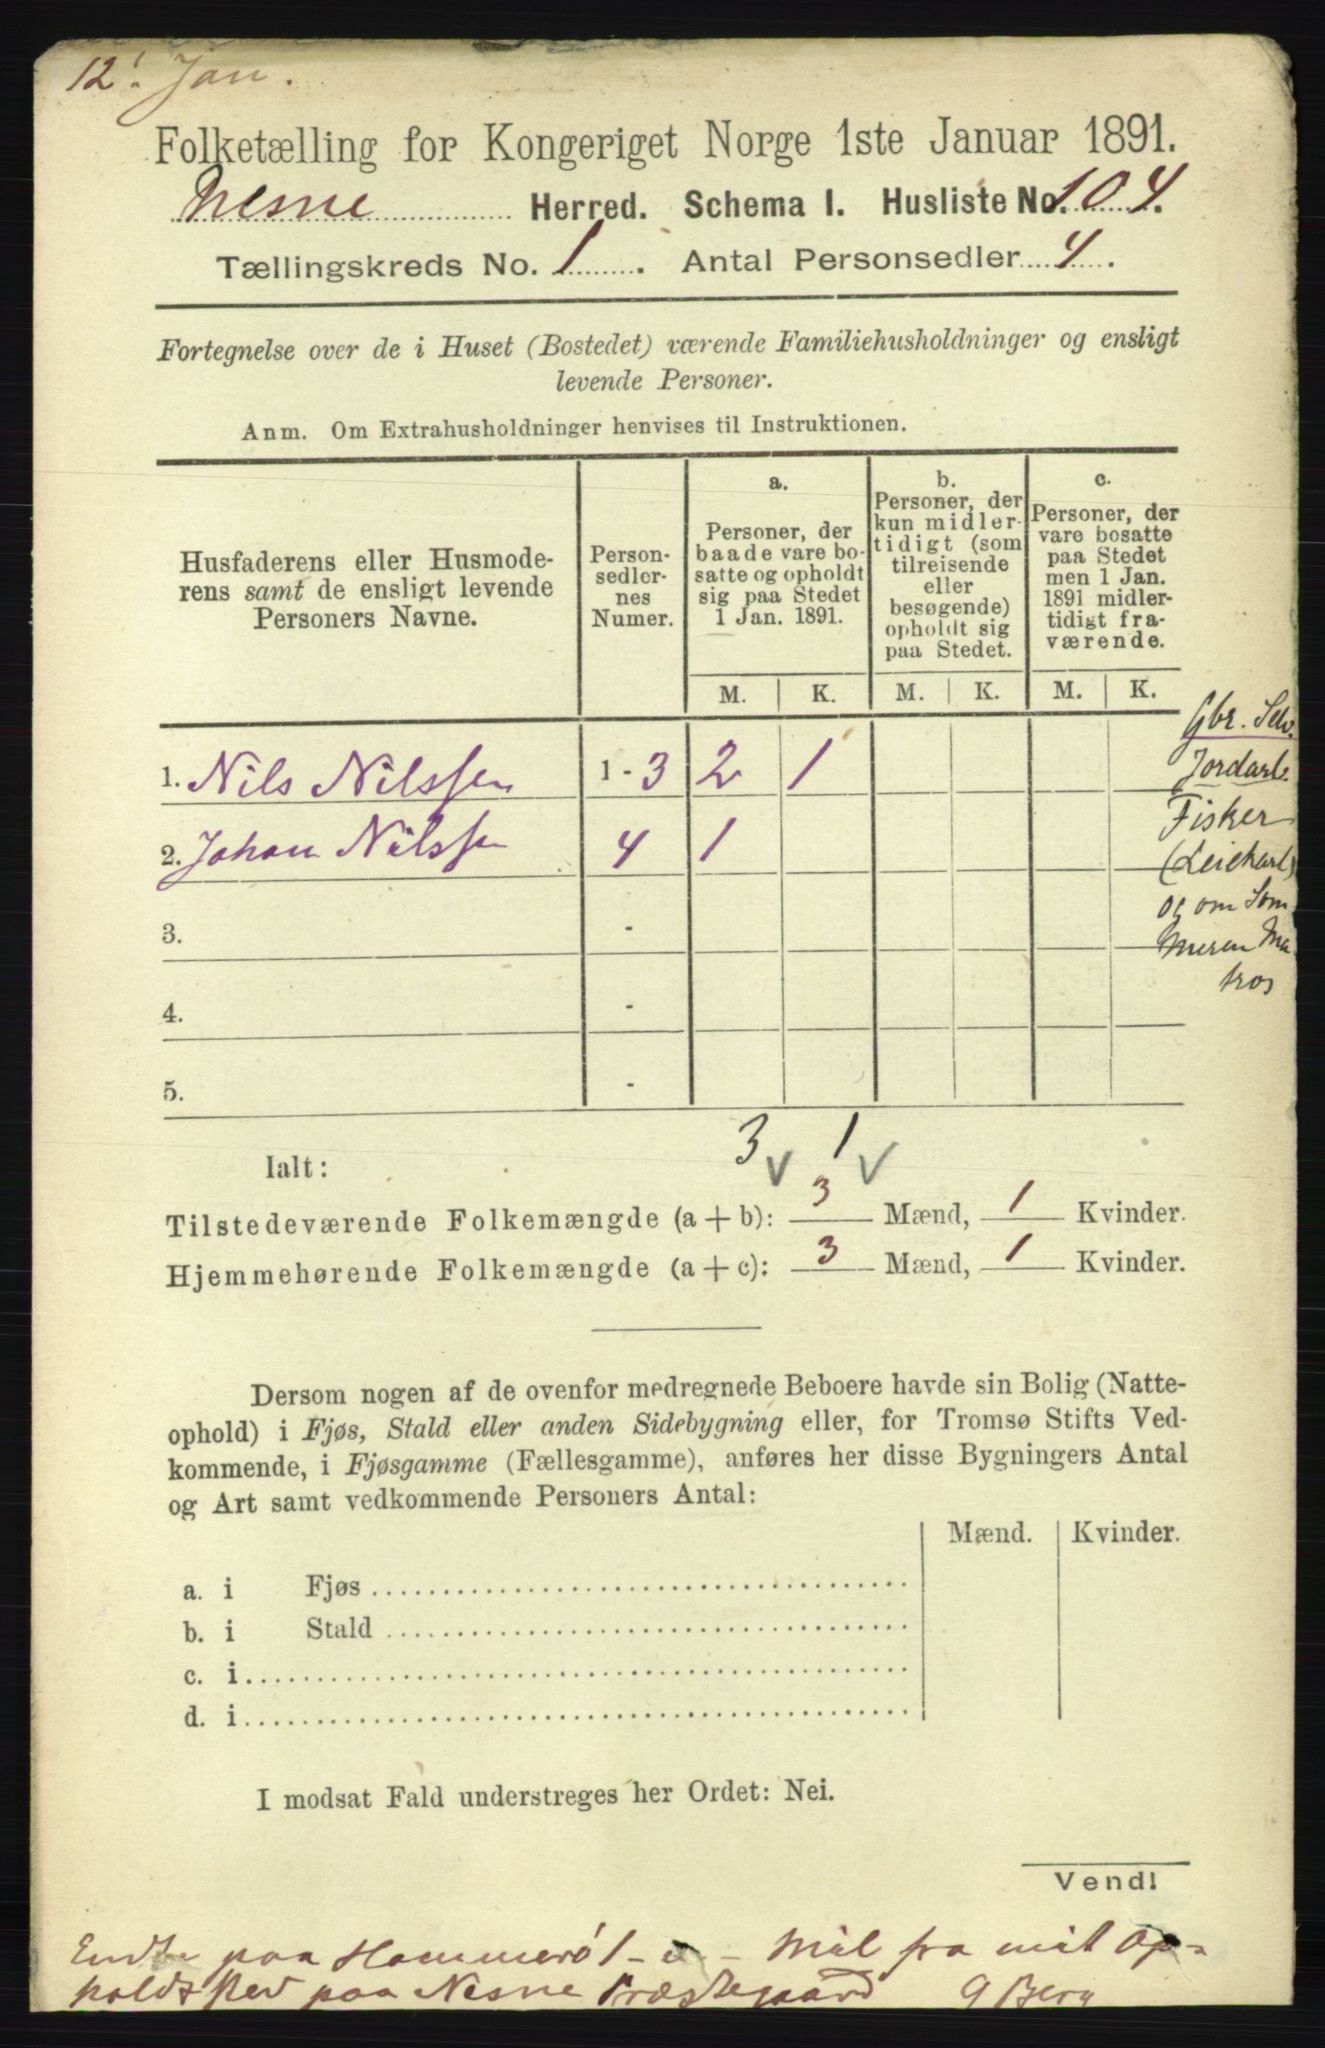 12' Jan.
Folketælling for Kongeriget Norge 1ste Januar 1891.
Nesne Herred. Schema I. Husliste No. 104.
Tællingskreds No. 1. Antal Personsedler 4.
Fortegnelse over de i Huset (Bostedet) værende Familiehusholdninger og ensligt
levende Personer.
Anm. Om Extrahusholdninger henvises til Instruktionen.
Husfaderens eller Husmode-
rens samt de ensligt levende
Personers Navne.
Person-
sedler-
nes
Numer.
a.
Personer, der
baade vare bo-
satte og opholdt
sig paa Stedet
1 Jan. 1891.
b.
Personer, der
kun midler-
tidigt (som
tilreisende
eller
besøgende)
opholdt sig
paa Stedet.
c.
Personer, der
vare bosatte
paa Stedet
men 1 Jan.
1891 midler-
tidigt fra-
værende.
M. K. M. K. M. K.
1. Nils Nilssen 1 - 3 2 1
2. Johan Nilssen 4 1
3. -
4. -
5. -
Gbr. Selv.
Jordarb.
Fisker
(Leiekarl)
og om Som
meren Ma
tros
3 1
Ialt:
Tilstedeværende Folkemængde (a + b): 3 Mænd, 1 Kvinder.
Hjemmehørende Folkemængde (a + c): 3 Mænd, 1 Kvinder.
Dersom nogen af de ovenfor medregnede Beboere havde sin Bolig (Natte-
ophold) i Fjøs, Stald eller anden Sidebygning eller, for Tromsø Stifts Ved-
kommende, i Fjøsgamme (Fællesgamme), anføres her disse Bygningers Antal
og Art samt vedkommende Personers Antal:
Mænd. Kvinder.
a. i Fjøs
b. i Stald
c. i
d. i
I modsat Fald understreges her Ordet: Nei.
Vend!
Endte paa Hammerø 1 - Mil fra mit Op-
holdssted paa Nesne Præstegaard G Berg